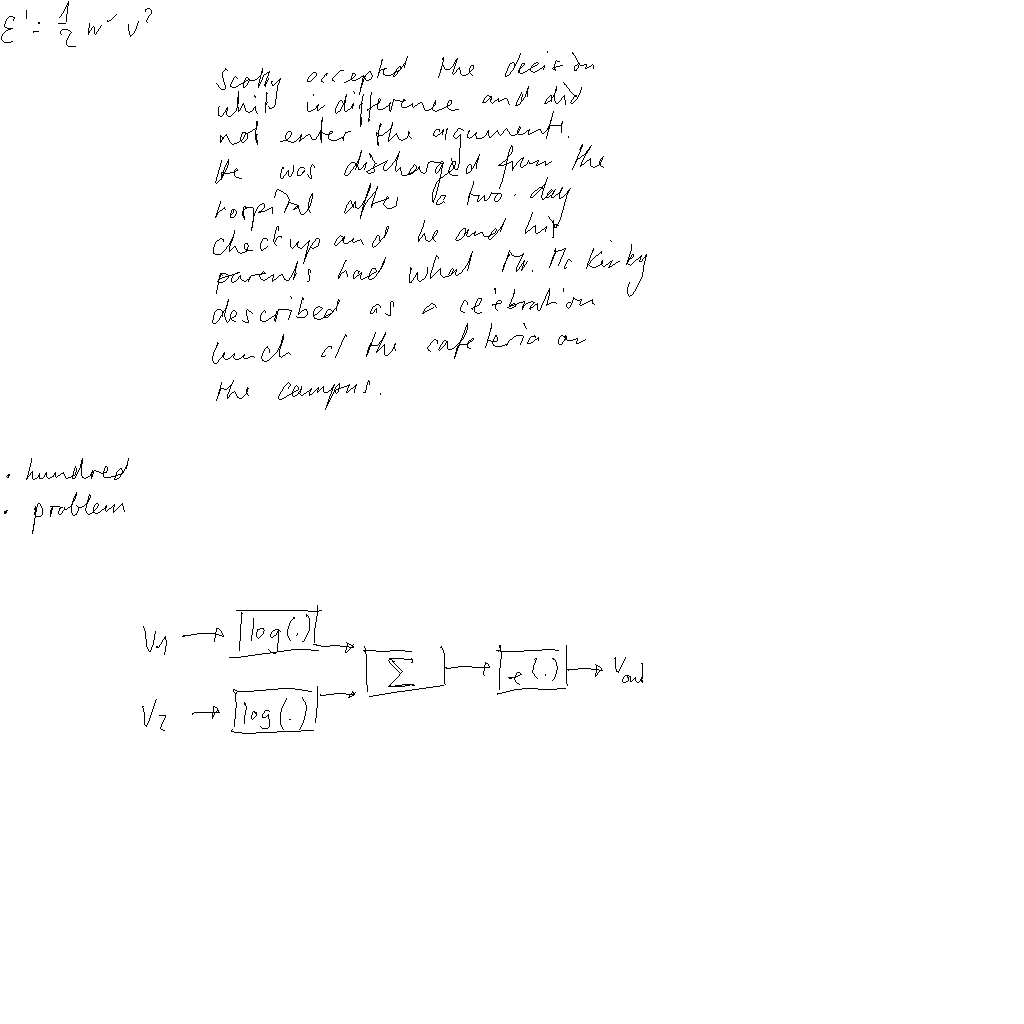 ε' = 1/2 m v²
Scotty accepted the decision
whit indifference and did
not enter the arguments.
He was discharged from the
hospital after a two-day
check up and he and his
parents had what Mr. McKinley
described as a celebration
lunch at the cafeteria on
the campus.
· hundred
· problem
V1 log(.)
Σ e(.) Vout
V2 log(.)